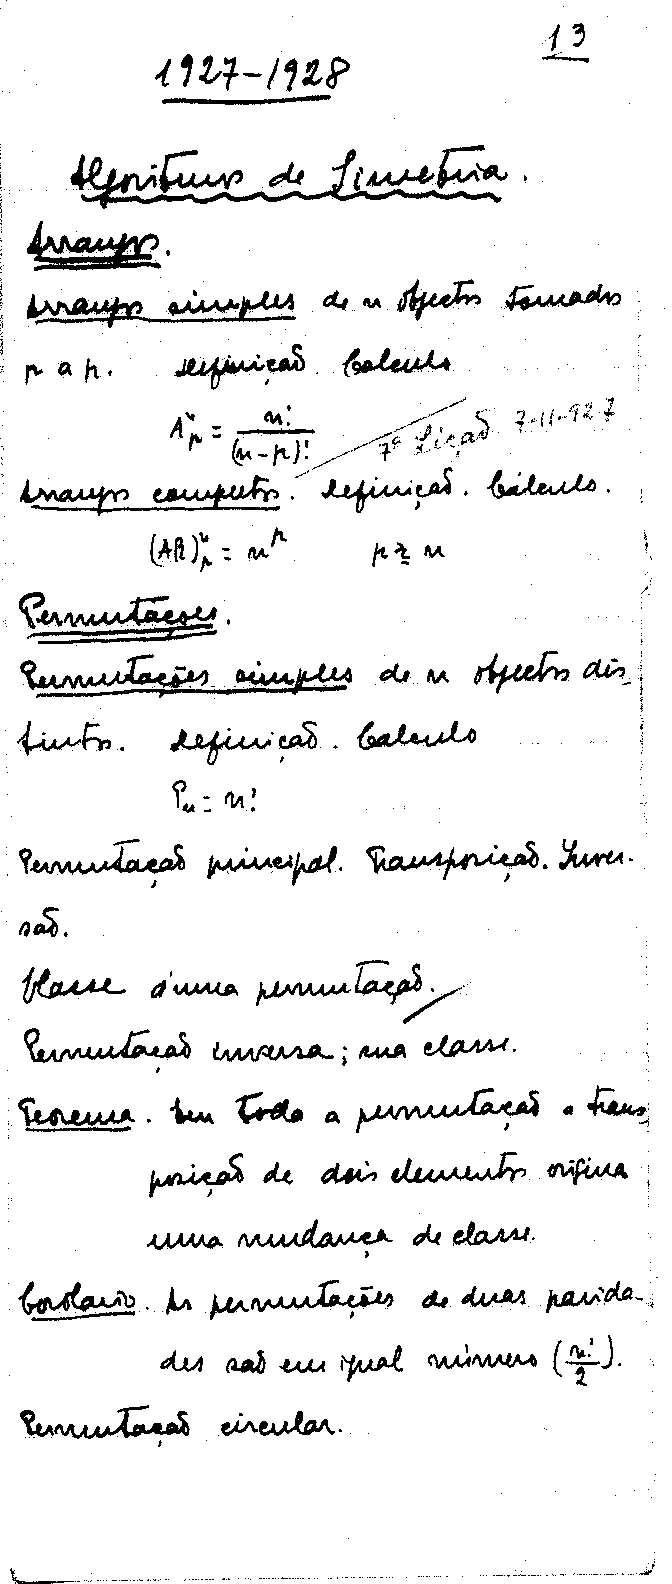 13
1927-1928
Algoritmos de Simetria.
Arranjos.
Arranjos simples de n objectos tomados
p a p. Definição Calculo
Aⁿₚ = n!/(n-p)!
7ª Lição 7-11-927
Arranjos completos. Definição. Cálculo.
(AR)ⁿₚ = nᵖ p ≷ n
Permutações.
Permutações simples de n objectos dis-
tintos. Definição. Calculo
Pₙ = n!
Permutação principal. Transposição. Inver-
são.
Classe d'uma permutação.
Permutação inversa; sua classe.
Teorema. Em toda a permutação a trans-
posição de dois elementos origina
uma mudança de classe.
Corolario. As permutações de duas parida-
des são em igual número (n!/2).
Permutação circular.